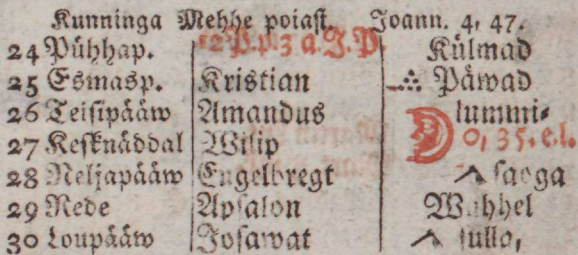 Kunninga Mehhe poiast. Joann. 4, 47.
24 Pühhap. 22 P. p. 3 a. J. P. Külmad
25 Esmasp. Kristian Päwad
26 Teisipääw Amandus lummi-
27 Kesknäddal Wilip 0, 35. e.l.
28 Neljapääw Engelbregt saoga
29 Rede Apsalon Wahhel
30 Loupääw Josawat sullo,